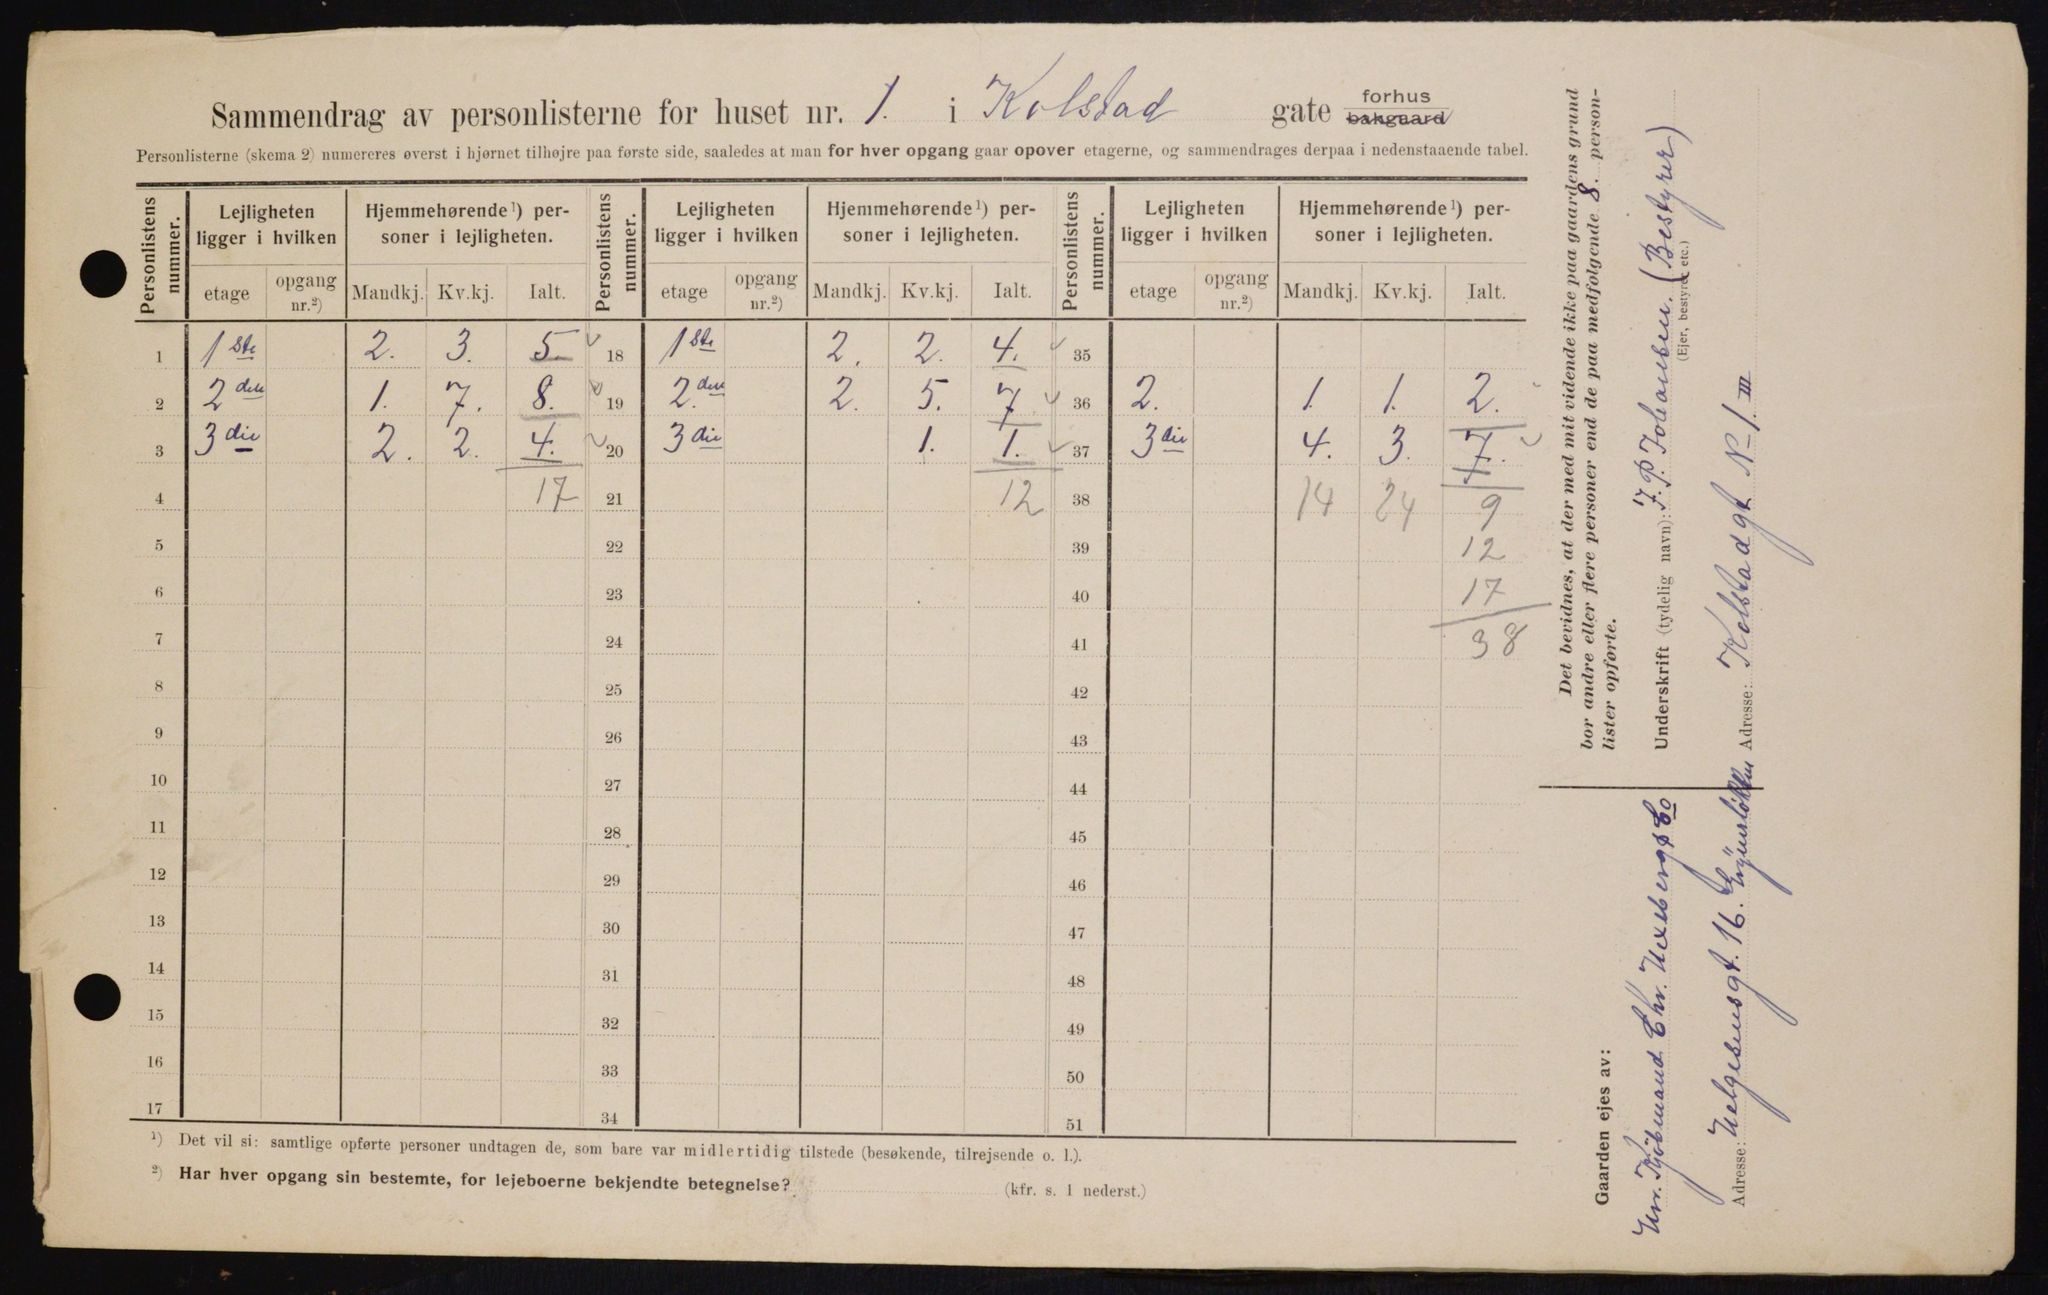 Sammendrag av personlisterne for huset nr. 1. i Kolstad gate forhus bakgaard
Personlisterne (skema 2) numereres øverst i hjørnet tilhøjre paa første side, saaledes at man for hver opgang gaar opover etagerne, og sammendrages derpaa i nedenstaaende tabel.
Personlistens nummer. Lejligheten ligger i hvilken Hjemmehørende ¹) personer i lejligheten. Personlistens nummer. Lejligheten ligger i hvilken Hjemmehørende ¹) personer i lejligheten. Personlistens nummer. Lejligheten ligger i hvilken Hjemmehørende ¹) personer i lejligheten.
etage opgang nr.²) Mandkj. Kv.kj. Ialt. etage opgang nr.²) Mandkj. Kv.kj. Ialt. etage opgang nr.²) Mandkj. Kv.kj. Ialt.
1 1ste 2. 3. 5. 18 1ste 2. 2. 4. 35
2 2den 1. 7. 8. 19 2.den 2. 5. 7 36 2. 1. 1. 2.
3 3die 2. 2. 4. 20 3die 1. 1. 37 3die 4. 3. 7.
4 17 21 12 38 14 24 9
5 22 39 12
6 23 40 17
7 24 41 38
8 25 42
9 26 43
10 27 44
11 28 45
12 29 46
13 30 47
14 31 48
15 32 49
16 33 50
17 34 51
¹) Det vil si: samtlige opførte personer undtagen de, som bare var midlertidig tilstede (besøkende, tilrejsende o. l.).
²) Har hver opgang sin bestemte, for lejeboerne bekjendte betegnelse? (kfr. s. 1 nederst.)
Det bevidnes, at der med mit vidende ikke paa gaardens grund
bor andre eller flere personer end de paa medfølgende 8. person-
lister opførte.
Underskrift (tydelig navn): J. P. Johansen. (Bestyrer)
(Ejer, bestyrer etc.)
Adresse: Kolstadgt No 1. III
Gaarden ejes av:
Hr. Kjøbmand Chr. Hexeberg & Co
Adresse: Helgesensgt. 16.